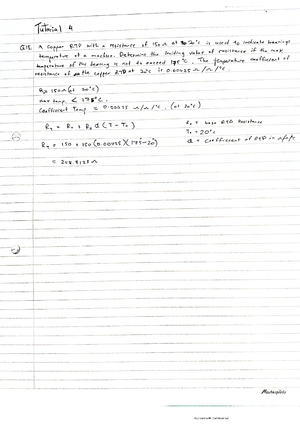 Tutorial 4
Q13. A copper RTD with a resistance of 150Ω at 20°c is used to indicate bearings
temperature at a machine. Determine the limiting value of resistance if the max
temperature of the bearing is not to exceed 175°c. The temperature coefficient of
resistance of the copper RTD at 20°c is 0.00425 Ω/Ω/°c
R₀ 150Ω (at 20°c)
max temp. ≤ 175°c.
Coefficient Temp = 0.00425 Ω/Ω/°c. (at 20°c)
R₁ = R₀ + R₀ α (T - T₀)
R₁ = 150 + 150 (0.00425)(175 - 20)
= 248.8125Ω
r₀ = base RTD Resistance
T₀ = 20°c
α = Coefficient of RTD in Ω/Ω/°c